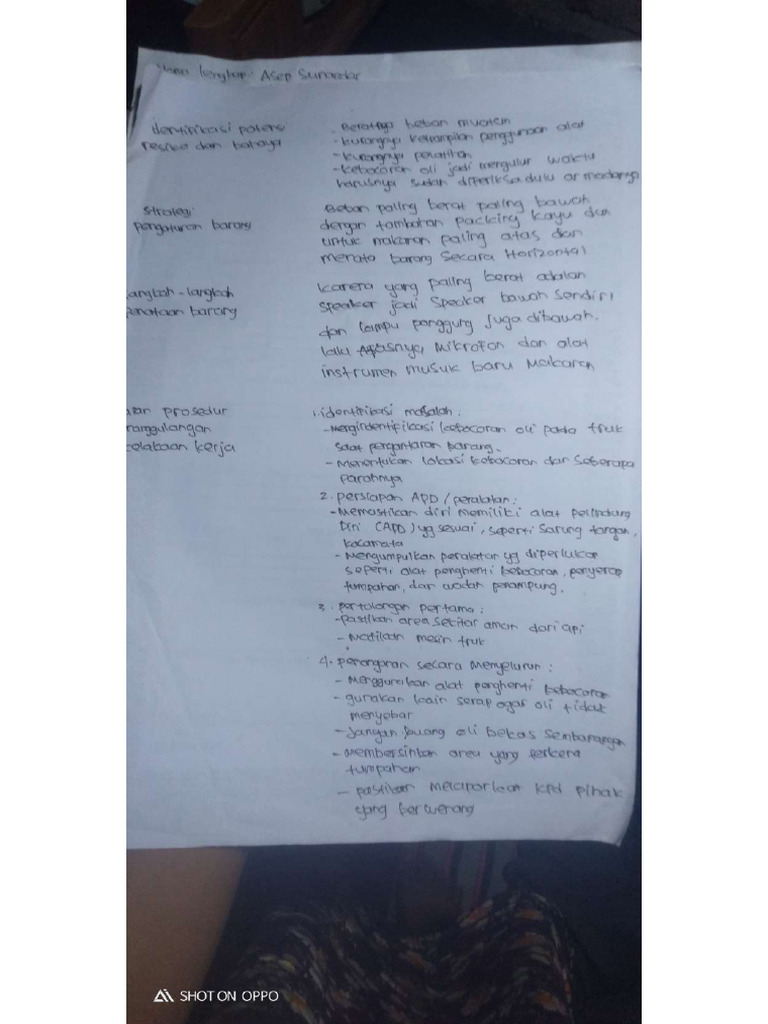 Nama lengkap: Asep Sunandar
identifikasi potensi
resiko dan bahaya
- Beratnya beban muatan
- kurangnya ketrampilan penggunaan alat
- kurangnya pelatihan
- kebocoran oli jadi mengulur waktu
harusnya sudah diperiksa dulu
Strategi
pengaturan barang
Beban paling berat paling bawah
dengan tambahan packing kayu dan
untuk makanan paling atas dan
menata barang secara Horizontal
langkah-langkah
penataan barang
karena yang paling berat adalah
speaker jadi speaker bawah sendiri
dan lampu panggung juga dibawah.
lalu Atasnya, Mikrofon dan alat
instrumen musuk baru Makanan
prosedur
kerja
1. identifikasi masalah :
- Mengindentifikasi kebocoran oli pada truk
saat pengantaran barang.
- Menentukan lokasi kebocoran dan seberapa
parahnya
2. persiapan APD / peralatan :
- Memastikan diri memiliki alat pelindung
Diri (APD) yg sesuai, seperti sarung tangan,
kacamata
- Mengumpulkan peralatan yg diperlukan
seperti alat penghenti kebocoran, penyerap
tumpahan, dan wadah penampung.
3. pertolongan pertama :
- pastikan area sekitar aman dari api
- Matikan mesin truk
4. penanganan secara menyeluruh :
- Menggunakan alat penghenti kebocoran
- gunakan kain serap agar oli tidak
menyebar
- Jangan buang oli bekas sembarangan
- Membersihkan area yang terkena
tumpahan
- pastikan melaporkan kpd pihak
yang berwenang
SHOT ON OPPO